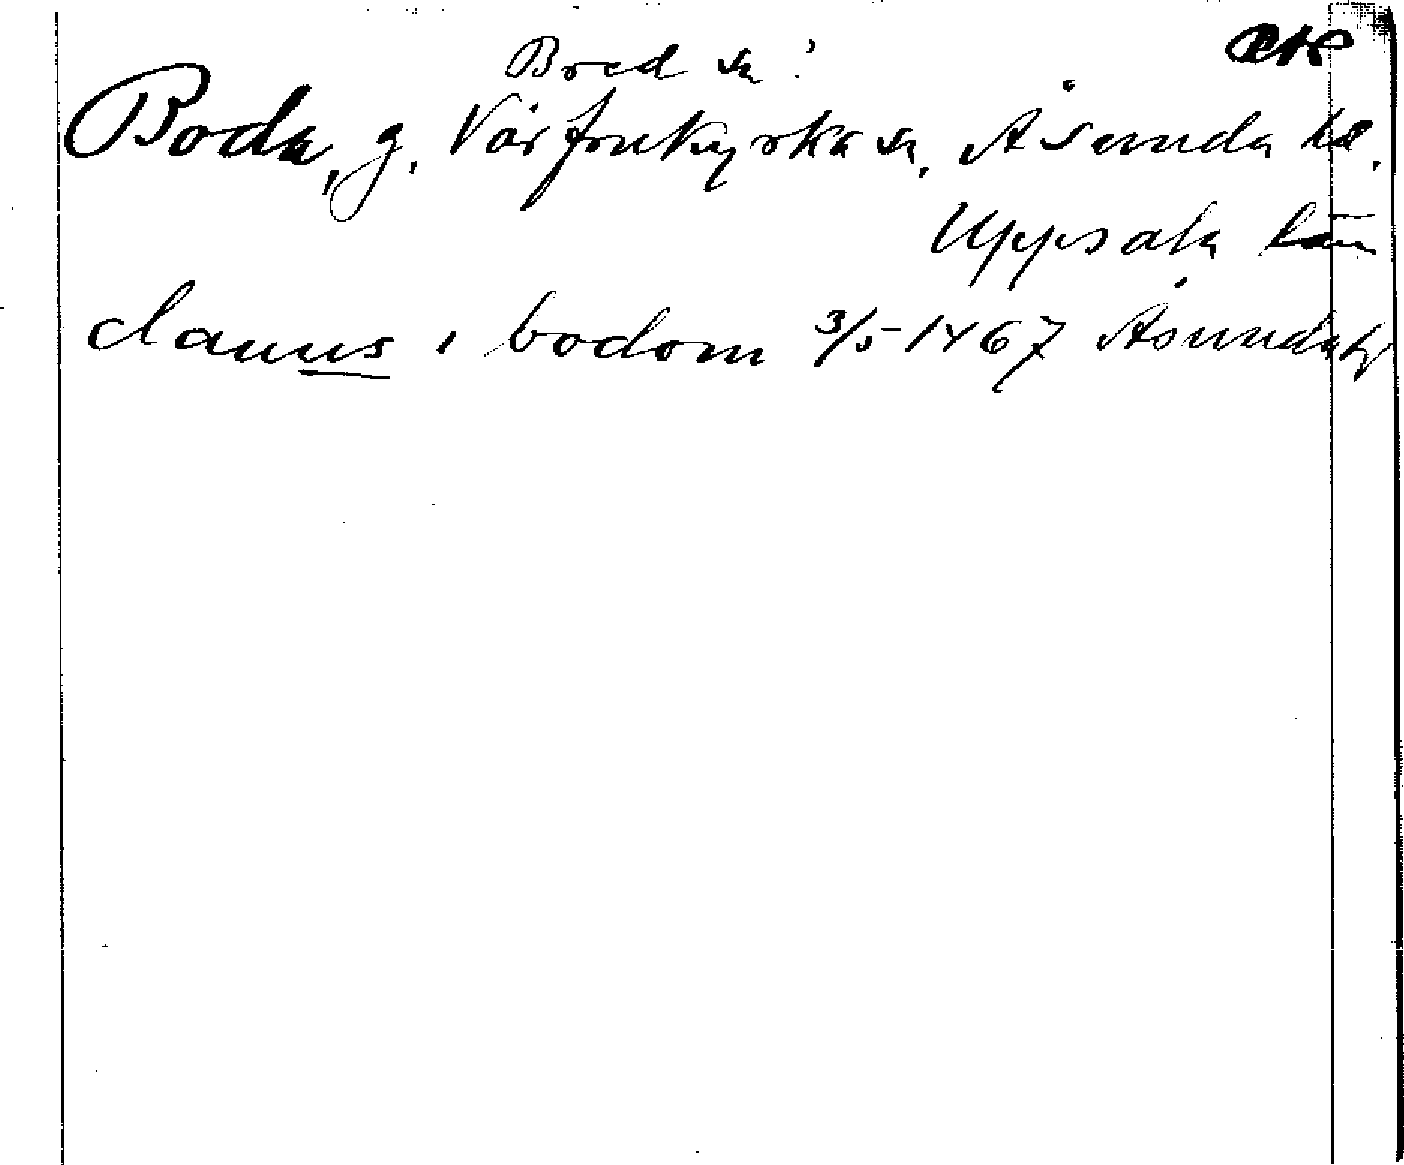 Bred sn!
Boda, g. Vårfrukyrka sn, Åsunda hd.
Uppsala län
clauus i bodom 3/5-1467 Åsunda